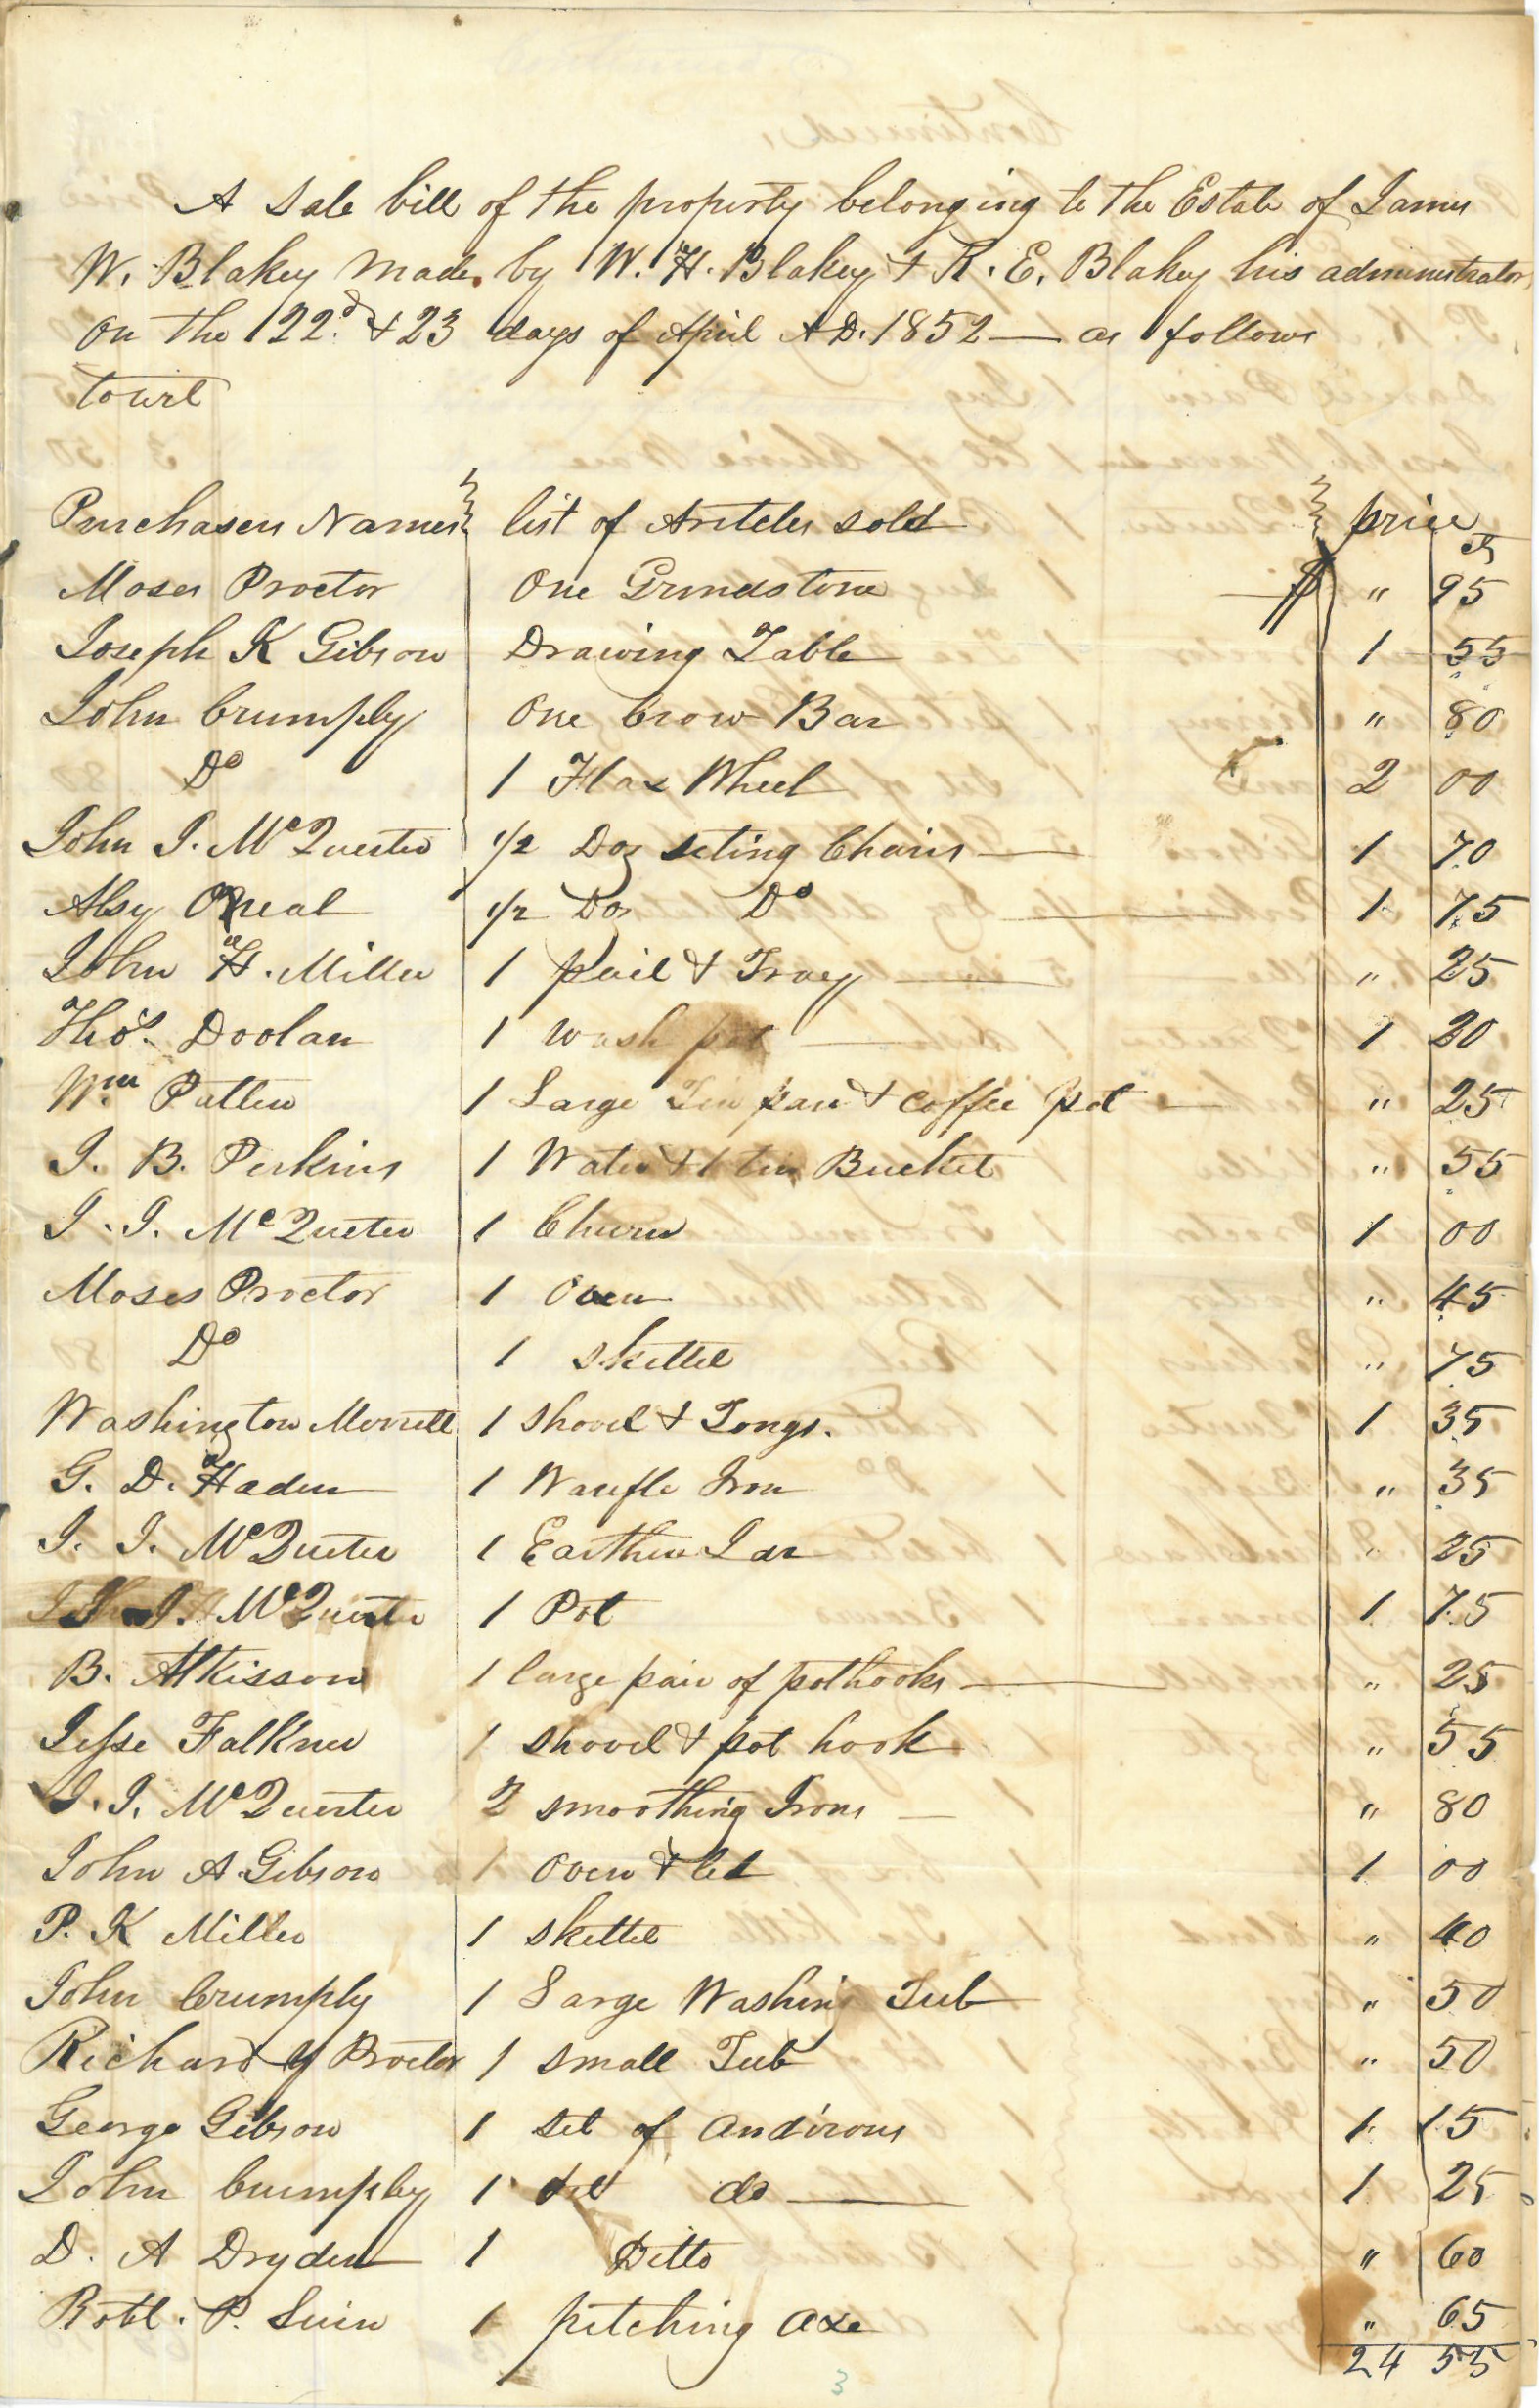 A Sale bill of the property belonging to the Estate of James
W. Blakey made by W. H. Blakey & R. E. Blakey his administrator
on the 22d & 23 days of April A D. 1852 — as follows
towit
Purchasers Names list of Artcles sold price
cts
Moses Proctor One Grindstone $ " 95
Joseph K Gibson Drawing Table 1 55
John Crumply One Crow Bar " 80
Do 1 Flax Wheel 2 00
John J. McQuester 1/2 Doz seting Chairs — 1 70
Alsy Oneal 1/2 Doz Do — 1 75
John H. Miller 1 pail & Tray — " 25
Thos. Doolan 1 wash pot — 1 20
Wm Patten 1 Large Tin pan & coffee pot — " 25
J. B. Perkins 1 Water & 1 tin Bucket " 55
J. J. McQueter 1 Churn 1 00
Moses Proctor 1 Oven " 45
Do 1 skettel " 75
Washington Morrell 1 shovel & Tongs. 1 35
G. D. Haden 1 Waufle Iron " 35
J. J. McQueter 1 Earthen Jar " 25
J. McQuester 1 Pot 1 75
B. Atkisson 1 large pair of pothooks — " 25
Jesse Falkner 1 shovel & pot hook " 55
J. J. McQuester 2 smoothing Irons — " 80
John A. Gibson 1 oven & led 1 00
P. K Miller 1 skettel " 40
John Crumply 1 Large Washing Tub " 50
Richard Y Proctor 1 small Tub " 50
George Gibson 1 set of andirons 1 15
John Crumpley 1 set do — 1 25
D. A Dryden 1 Ditto " 60
Robt. P. 1 pitching axe " 65
24 55
3